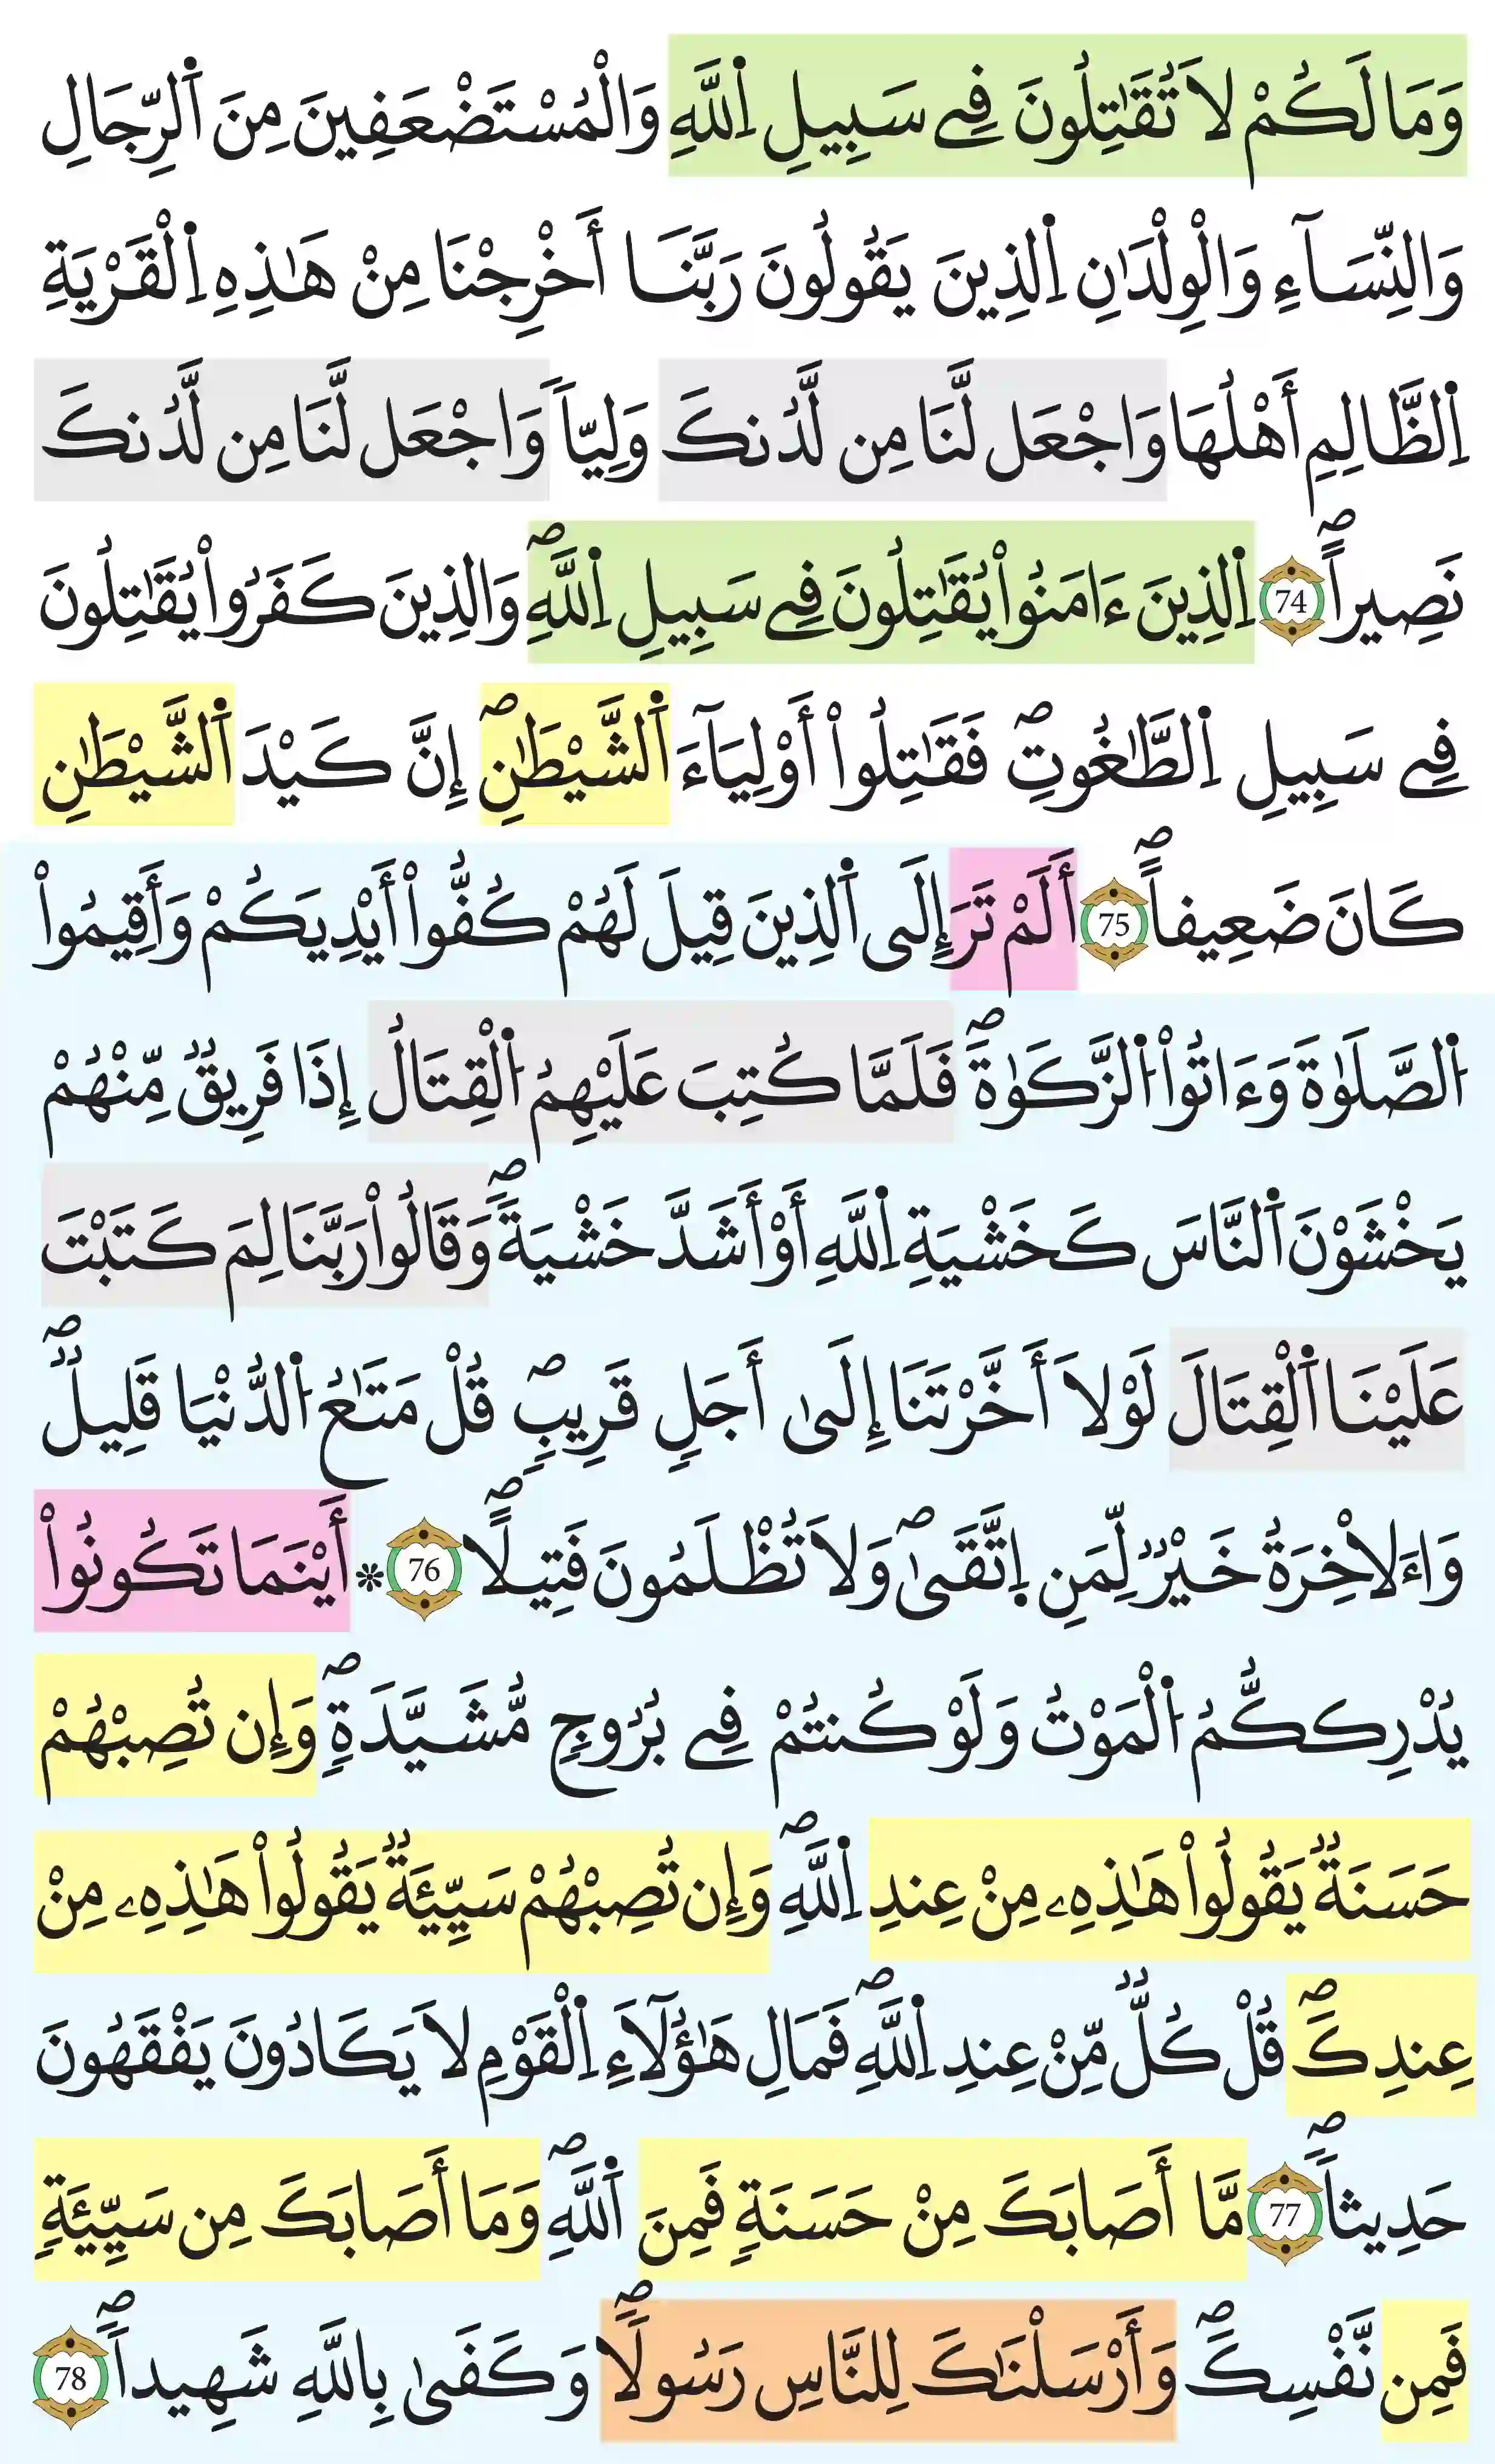 وَمَا لَكُمْ لَا تُقَٰتِلُونَ فِے سَبِيلِ اِ۬للَّهِ وَالْمُسْتَضْعَفِينَ مِنَ اَ۬لرِّجَالِ
وَالنِّسَآءِ وَالْوِلْدَٰنِ اِ۬لذِينَ يَقُولُونَ رَبَّنَا أَخْرِجْنَا مِنْ هَٰذِهِ اِ۬لْقَرْيَةِ
اِ۬لظَّالِمِ أَهْلُهَا وَاجْعَل لَّنَا مِن لَّدُنكَ وَلِيّاً وَاجْعَل لَّنَا مِن لَّدُنكَ
نَصِيراًۖ 74 اِ۬لذِينَ ءَامَنُواْ يُقَٰتِلُونَ فِے سَبِيلِ اِ۬للَّهِۖ وَالذِينَ كَفَرُواْ يُقَٰتِلُونَ
فِے سَبِيلِ اِ۬لطَّٰغُوتِۖ فَقَٰتِلُواْ أَوْلِيَآءَ اَ۬لشَّيْطَٰنِۖ إِنَّ كَيْدَ اَ۬لشَّيْطَٰنِ
كَانَ ضَعِيفاًۖ 75 أَلَمْ تَرَ إِلَى اَ۬لذِينَ قِيلَ لَهُمْ كُفُّواْ أَيْدِيَكُمْ وَأَقِيمُواْ
اُ۬لصَّلَوٰةَ وَءَاتُواْ اُ۬لزَّكَوٰةَۖ فَلَمَّا كُتِبَ عَلَيْهِمُ اُ۬لْقِتَالُ إِذَا فَرِيقٌ مِّنْهُمْ
يَخْشَوْنَ اَ۬لنَّاسَ كَخَشْيَةِ اِ۬للَّهِ أَوْ أَشَدَّ خَشْيَةًۖ وَقَالُواْ رَبَّنَا لِمَ كَتَبْتَ
عَلَيْنَا اَ۬لْقِتَالَ لَوْلَا أَخَّرْتَنَا إِلَىٰ أَجَلٍ قَرِيبٍۖ قُلْ مَتَٰعُ اُ۬لدُّنْيَا قَلِيلٌۖ
وَاءَلَاخِرَةُ خَيْرٌ لِّمَنِ اِ۪تَّقَىٰۖ وَلَا تُظْلَمُونَ فَتِيلاًۖ 76 * أَيْنَمَا تَكُونُواْ
يُدْرِككُّمُ اُ۬لْمَوْتُ وَلَوْ كُنتُمْ فِے بُرُوجٍ مُّشَيَّدَةٍۖ وَإِن تُصِبْهُمْ
حَسَنَةٌ يَقُولُواْ هَٰذِهِۦ مِنْ عِندِ اِ۬للَّهِۖ وَإِن تُصِبْهُمْ سَيِّئَةٌ يَقُولُواْ هَٰذِهِۦ مِنْ
عِندِكَۖ قُلْ كُلٌّ مِّنْ عِندِ اِ۬للَّهِۖ فَمَالِ هَٰٓؤُلَآءِ اِ۬لْقَوْمِ لَا يَكَادُونَ يَفْقَهُونَ
حَدِيثاًۖ 77 مَّا أَصَابَكَ مِنْ حَسَنَةٍ فَمِنَ اَ۬للَّهِۖ وَمَا أَصَابَكَ مِن سَيِّئَةٍ
فَمِن نَّفْسِكَۖ وَأَرْسَلْنَٰكَ لِلنَّاسِ رَسُولاًۖ وَكَفَىٰ بِاللَّهِ شَهِيداًۖ 78